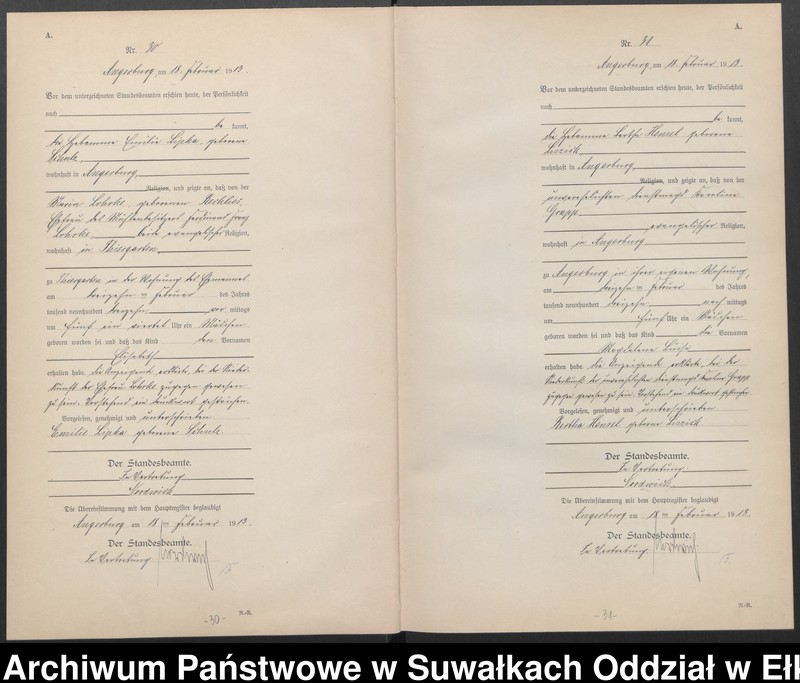 A.
Nr. 30
Angerburg, am 18. Februar 1913.
Vor dem unterzeichneten Standesbeamten erschien heute, der Persönlichkeit
nach
be kannt,
die Hebamme Emilie Lipka geborene
Schulz,
wohnhaft in Angerburg,
Religion, und zeigte an, daß von der
Maria Lohoks, geborenen
Ehefrau des Mühlenbesitzers Ferdinand Franz
Lohoks, beide evangelischer Religion,
wohnhaft in Thiergarten,
zu Thiergarten in der Wohnung des Ehemannes
am dreizehnten Februar des Jahres
tausend neunhundert dreizehn vor mittags
um fünf ein viertel Uhr ein Mädchen
geboren worden sei und daß das Kind den Vornamen
Elisabeth
erhalten habe. Die Anzeigende erklärte, bei der Nieder-
kunft der Ehefrau Lohoks zugegen gewesen
zu sein. Vorstehend ein Druckwort gestrichen.
Vorgelesen, genehmigt und unterschrieben
Emilie Lipka geborene Schulz
Der Standesbeamte.
In Vertretung
Nordwich
Die Übereinstimmung mit dem Hauptregister beglaubigt
Angerburg am 18ten Februar 1913.
Der Standesbeamte.
In Vertretung
N.-R.
-30-
A.
Nr. 31
Angerburg, am 18. Februar 1913.
Vor dem unterzeichneten Standesbeamten erschien heute, der Persönlichkeit
nach
be kannt,
die Hebamme Bertha Hensel geborene
wohnhaft in Angerburg,
Religion, und zeigte an, daß von der
unverehelichten Dienstmagd Karoline
Grapp
evangelischer Religion,
wohnhaft in Angerburg
zu Angerburg in ihrer eigenen Wohnung,
am dreizehnten Februar des Jahres
tausend neunhundert dreizehn nach mittags
um fünf Uhr ein Mädchen
geboren worden sei und daß das Kind die Vornamen
Magdalena Luise
erhalten habe. Die Anzeigende erklärte, bei der
Niederkunft der unverehelichten Dienstmagd Karoline Grapp
zugegen gewesen zu sein. Vorstehend ein Druckwort gestrichen.
Vorgelesen, genehmigt und unterschrieben
Bertha Hensel geborene
Der Standesbeamte.
In Vertretung.
Nordwich
Die Übereinstimmung mit dem Hauptregister beglaubigt
Angerburg am 18ten Februar 1913.
Der Standesbeamte.
In Vertretung
N.-R.
-31-
Archiwum Państwowe w Suwałkach Oddział w Ełk